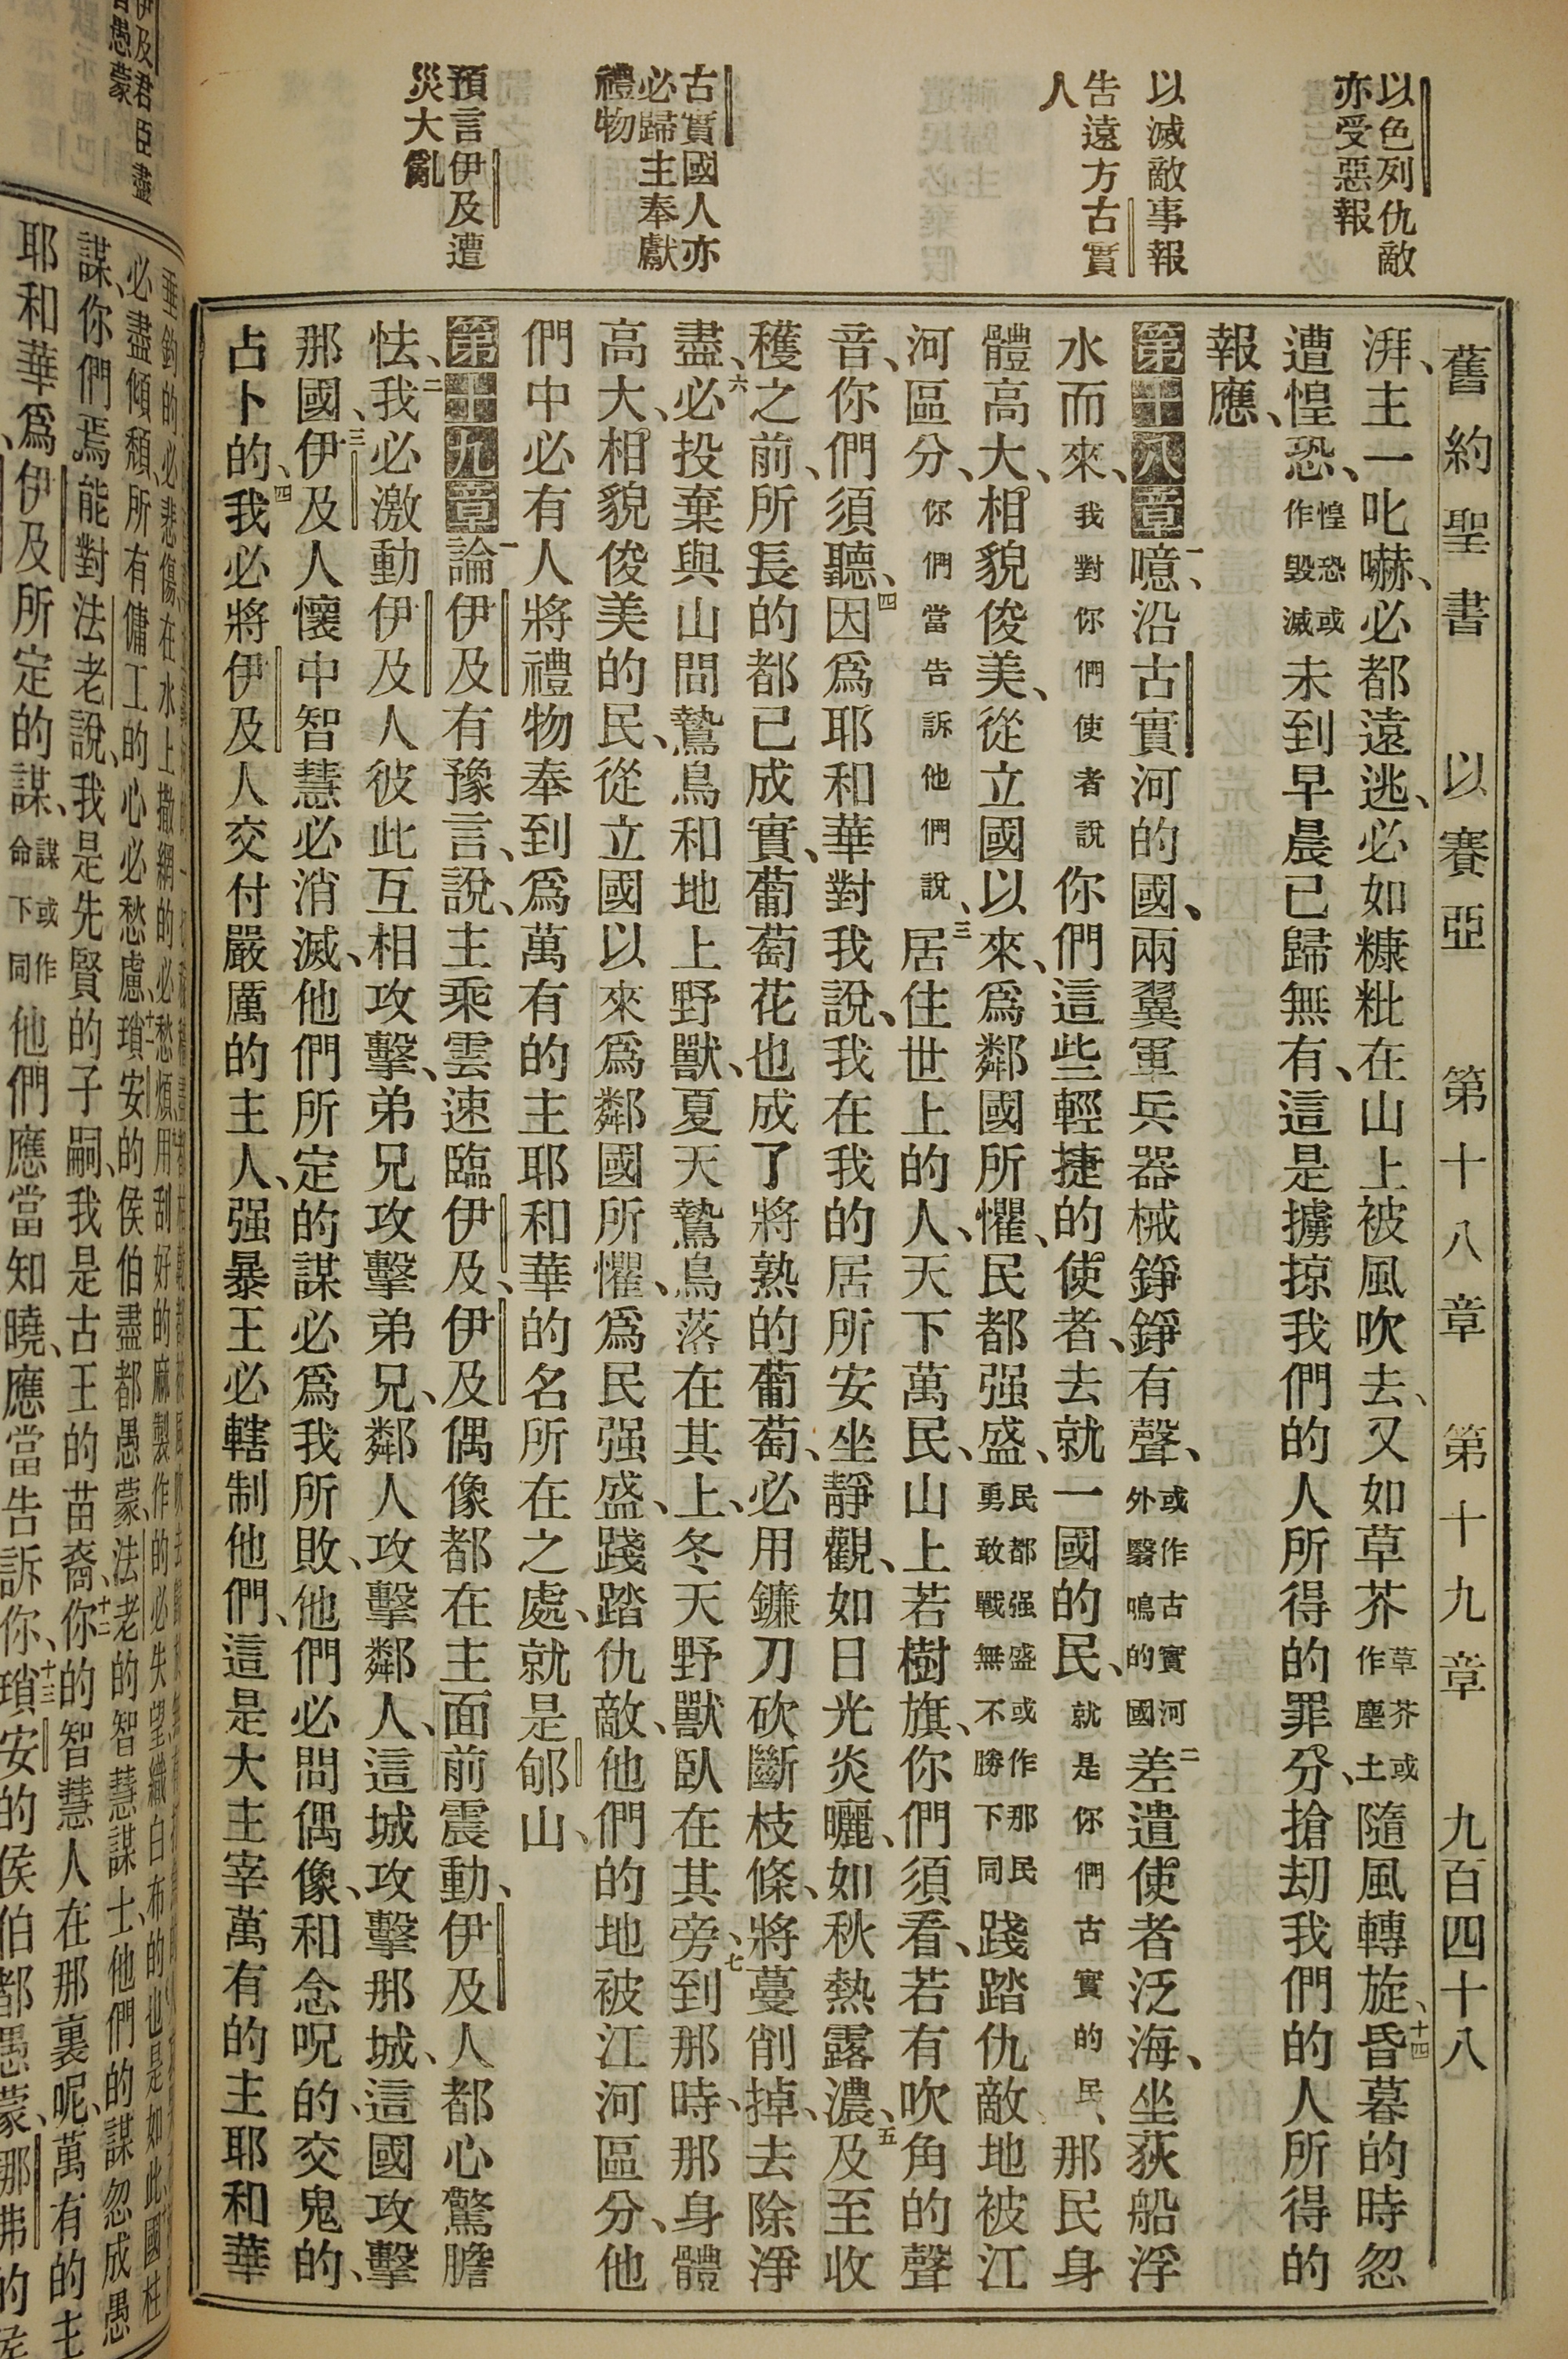 舊約聖書 以賽亞 第十八章 第十九章 九百四十八
以色列仇敵
亦受惡報
以滅敵事報
告遠方古實
人
古實國人亦
必歸主奉獻
禮物
預言伊及遭
災大亂
湃、主一叱嚇、必都遠逃、必如糠粃在山上被風吹去、又如草芥草芥或作塵土隨風轉旋、十四昏暮的時忽
遭惶恐、惶恐或作毀滅未到早晨已歸無有、這是擄掠我們的人所得的罪分、搶刼我們的人所得的
報應、
第十八章一噫、沿古實河的國、兩翼軍兵器械錚錚有聲、或作古實河外翳鳴的國二差遣使者泛海、坐荻船浮
水而來、我對你們使者說你們這些輕捷的使者、去就一國的民、就是你們古實的民、那民身
體高大、相貌俊美、從立國以來、爲鄰國所懼、民都强盛、民都强盛或作那民勇敢戰無不勝下同踐踏仇敵地被江
河區分、你們當告訴他們說、三居住世上的人、天下萬民、山上若樹旗、你們須看、若有吹角的聲
音、你們須聽、四因爲耶和華對我說、我在我的居所安坐靜觀、如日光炎曬、如秋熱露濃、五及至收
穫之前、所長的都已成實、葡萄花也成了將熟的葡萄、必用鐮刀砍斷枝條、將蔓削掉、去除淨
盡、六必投棄與山間鷙鳥和地上野獸、夏天鷙鳥落在其上、冬天野獸臥在其旁、七到那時、那身體
高大、相貌俊美的民、從立國以來爲鄰國所懼、爲民强盛、踐踏仇敵、他們的地被江河區分、他
們中必有人將禮物奉到爲萬有的主耶和華的名所在之處、就是郇山、
第十九章一論伊及有豫言、說、主乘雲速臨伊及、伊及偶像都在主面前震動、伊及人都心驚膽
怯、二我必激動伊及人彼此互相攻擊、弟兄攻擊弟兄、鄰人攻擊鄰人、這城攻擊那城、這國攻擊
那國、三伊及人懷中智慧必消滅、他們所定的謀必爲我所敗、他們必問偶像、和念呪的、交鬼的、
占卜的、四我必將伊及人交付嚴厲的主人、强暴王必轄制他們、這是大主宰萬有的主耶和華
伊及君臣盡
謀、你們焉能對法老說、我是先賢的子嗣、我是古王的苗裔、十二你的智慧人在那裏呢、萬有的主
耶和華爲伊及所定的謀、謀或作命下同他們應當知曉、應當告訴你、十三瑣安的侯伯都愚蒙、那弗的